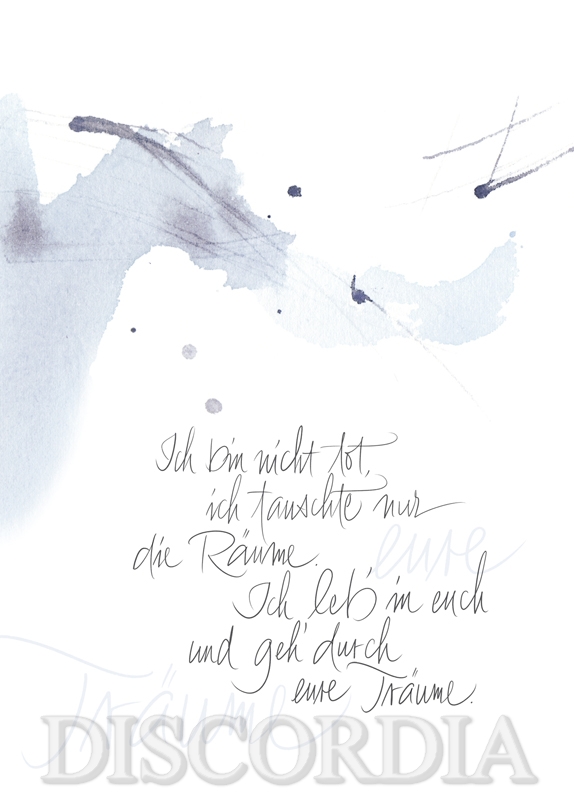 Ich bin nicht tot,
ich tauschte nur
die Räume.
eure
Ich leb' in euch
und geh' durch
eure Träume.
Träume
DISCORDIA